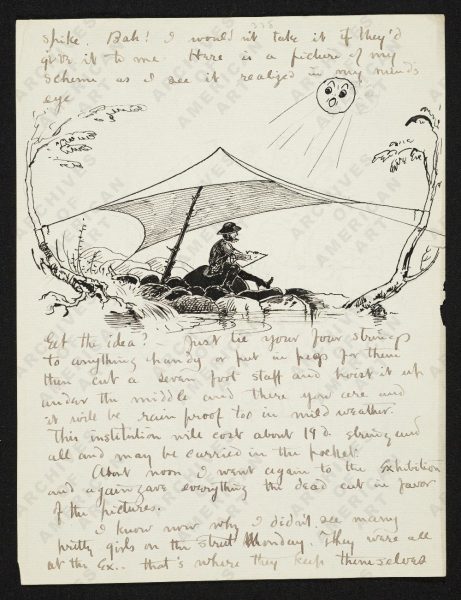 spike. Bah! I wouldn't take it if they'd
give it to me. Here is a picture of my
scheme as I see it realized in my mind's
eye
Get the idea? Just tie your four strings
to anything handy or put in pegs for them
then cut a seven foot staff and hoist it up
under the middle and there you are and
it will be rain proof too in mild weather.
This institution will cost about 19 d. string and
all and may be carried in the pocket.
About noon I went again to the Exhibition
and again gave everything the dead cut in favor
of the pictures.
I know now why I didn't see many
pretty girls on the street Monday. They were all
at the Ex.. that's where they keep themselves
ARCHIVES OF AMERICAN ART